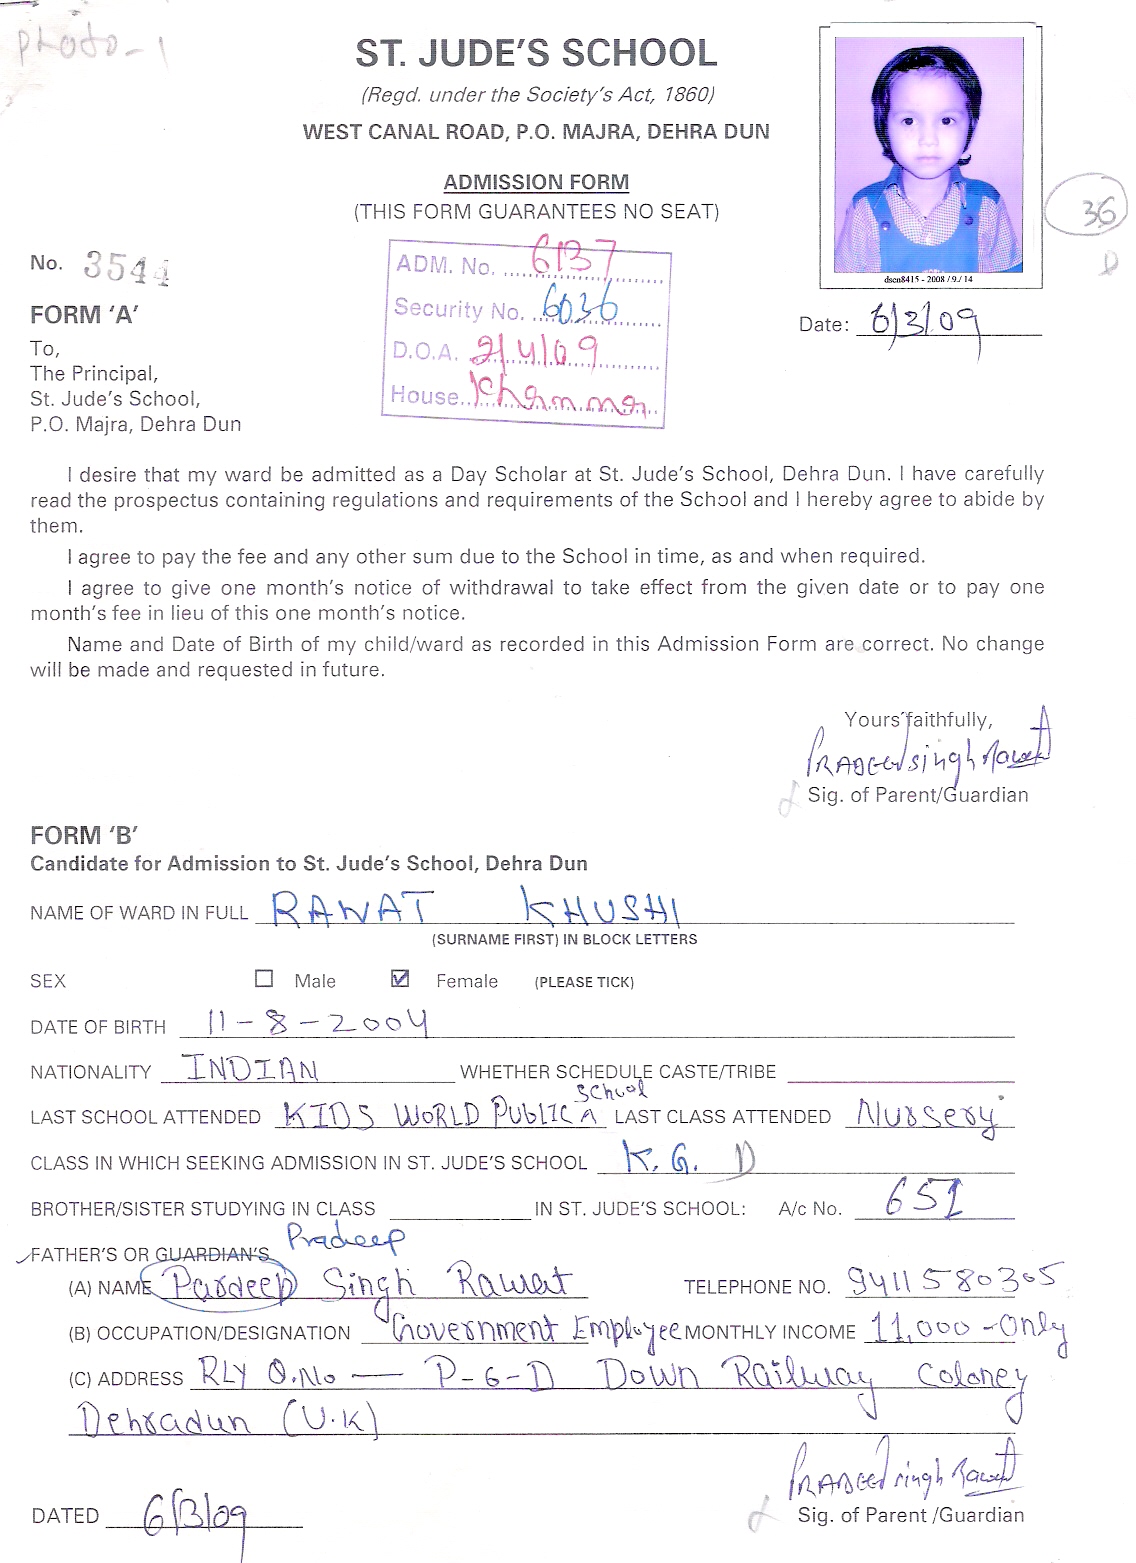 photo-1
ST. JUDE'S SCHOOL
(Regd. under the Society's Act, 1860)
WEST CANAL ROAD, P.O. MAJRA, DEHRA DUN
ADMISSION FORM
(THIS FORM GUARANTEES NO SEAT)
dscn8415 - 2008 / 9./ 14
36
D
No. 3544
ADM. No. 6137
Security No. 6036
D.O.A. 2/4/09
House
Date: 6/3/09
FORM 'A'
To,
The Principal,
St. Jude's School,
P.O. Majra, Dehra Dun
I desire that my ward be admitted as a Day Scholar at St. Jude's School, Dehra Dun. I have carefully
read the prospectus containing regulations and requirements of the School and I hereby agree to abide by
them.
I agree to pay the fee and any other sum due to the School in time, as and when required.
I agree to give one month's notice of withdrawal to take effect from the given date or to pay one
month's fee in lieu of this one month's notice.
Name and Date of Birth of my child/ward as recorded in this Admission Form are correct. No change
will be made and requested in future.
Yours faithfully,
PRADEEP singh Rawat
Sig. of Parent/Guardian
FORM 'B'
Candidate for Admission to St. Jude's School, Dehra Dun
NAME OF WARD IN FULL RAWAT KHUSHI
(SURNAME FIRST) IN BLOCK LETTERS
SEX Male Female (PLEASE TICK)
DATE OF BIRTH 11-8-2004
NATIONALITY INDIAN WHETHER SCHEDULE CASTE/TRIBE
LAST SCHOOL ATTENDED KIDS WORLD PUBLIC School LAST CLASS ATTENDED Nursery
CLASS IN WHICH SEEKING ADMISSION IN ST. JUDE'S SCHOOL K.G. D
BROTHER/SISTER STUDYING IN CLASS IN ST. JUDE'S SCHOOL: A/c No. 651
FATHER'S OR GUARDIAN'S Pradeep
(A) NAME Pardeep Singh Rawat TELEPHONE NO. 9411580305
(B) OCCUPATION/DESIGNATION Government Employee MONTHLY INCOME 11,000 -Only
(C) ADDRESS RLY Q.No — P-6-D Down Railway Coloney
Dehradun (U.K)
PRADEEP singh Rawat
DATED 6/3/09 Sig. of Parent /Guardian